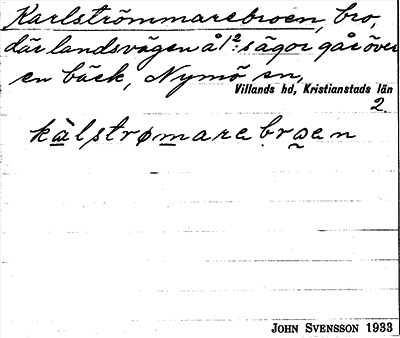 Karlströmmarebroen, bro,
där landsvägen å 1²: s ägor går över
en bäck, Nymö sn,
Villands hd, Kristianstads län
2.
kàlstrømarebroen
JOHN SVENSSON 1933